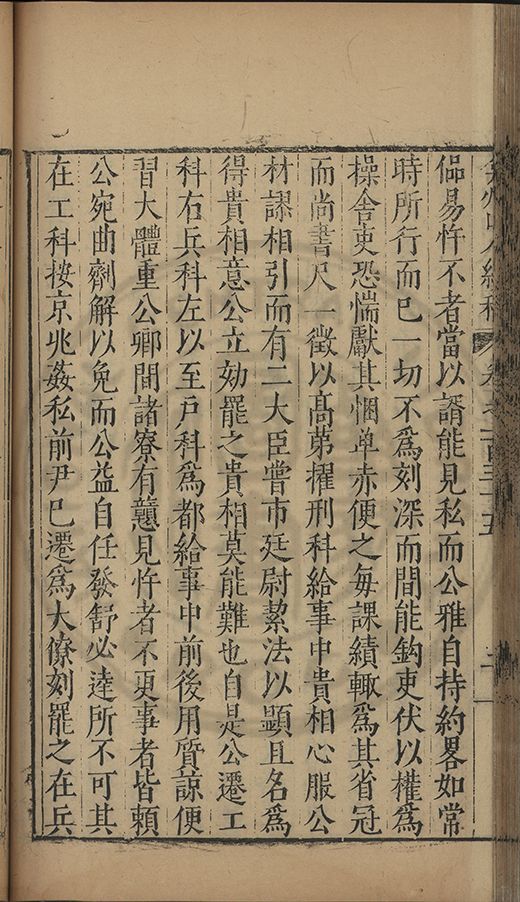 弇州山人續稿 卷之一百三十五 二
侃易忤不者當以謟能見私而公雅自持約畧如常
時所行而已一切不爲刻深而間能鈎吏伏以權爲
操舍吏恐惴獻其悃单赤便之每課績輙爲其省冠
而尚書尺一徵以髙苐擢刑科給事中貴相心服公
材謬相引而有二大臣嘗市廷尉絜法以顕且名爲
得貴相意公立効罷之貴相莫能難也自是公遷工
科右兵科左以至戶科爲都給事中前後用質諒便
習大體重公卿間諸寮有戇見忤者不更事者皆頼
公宛曲劑解以免而公益自任發舒必達所不可其
在工科按京兆姦私前尹已遷爲大僚刻罷之在兵